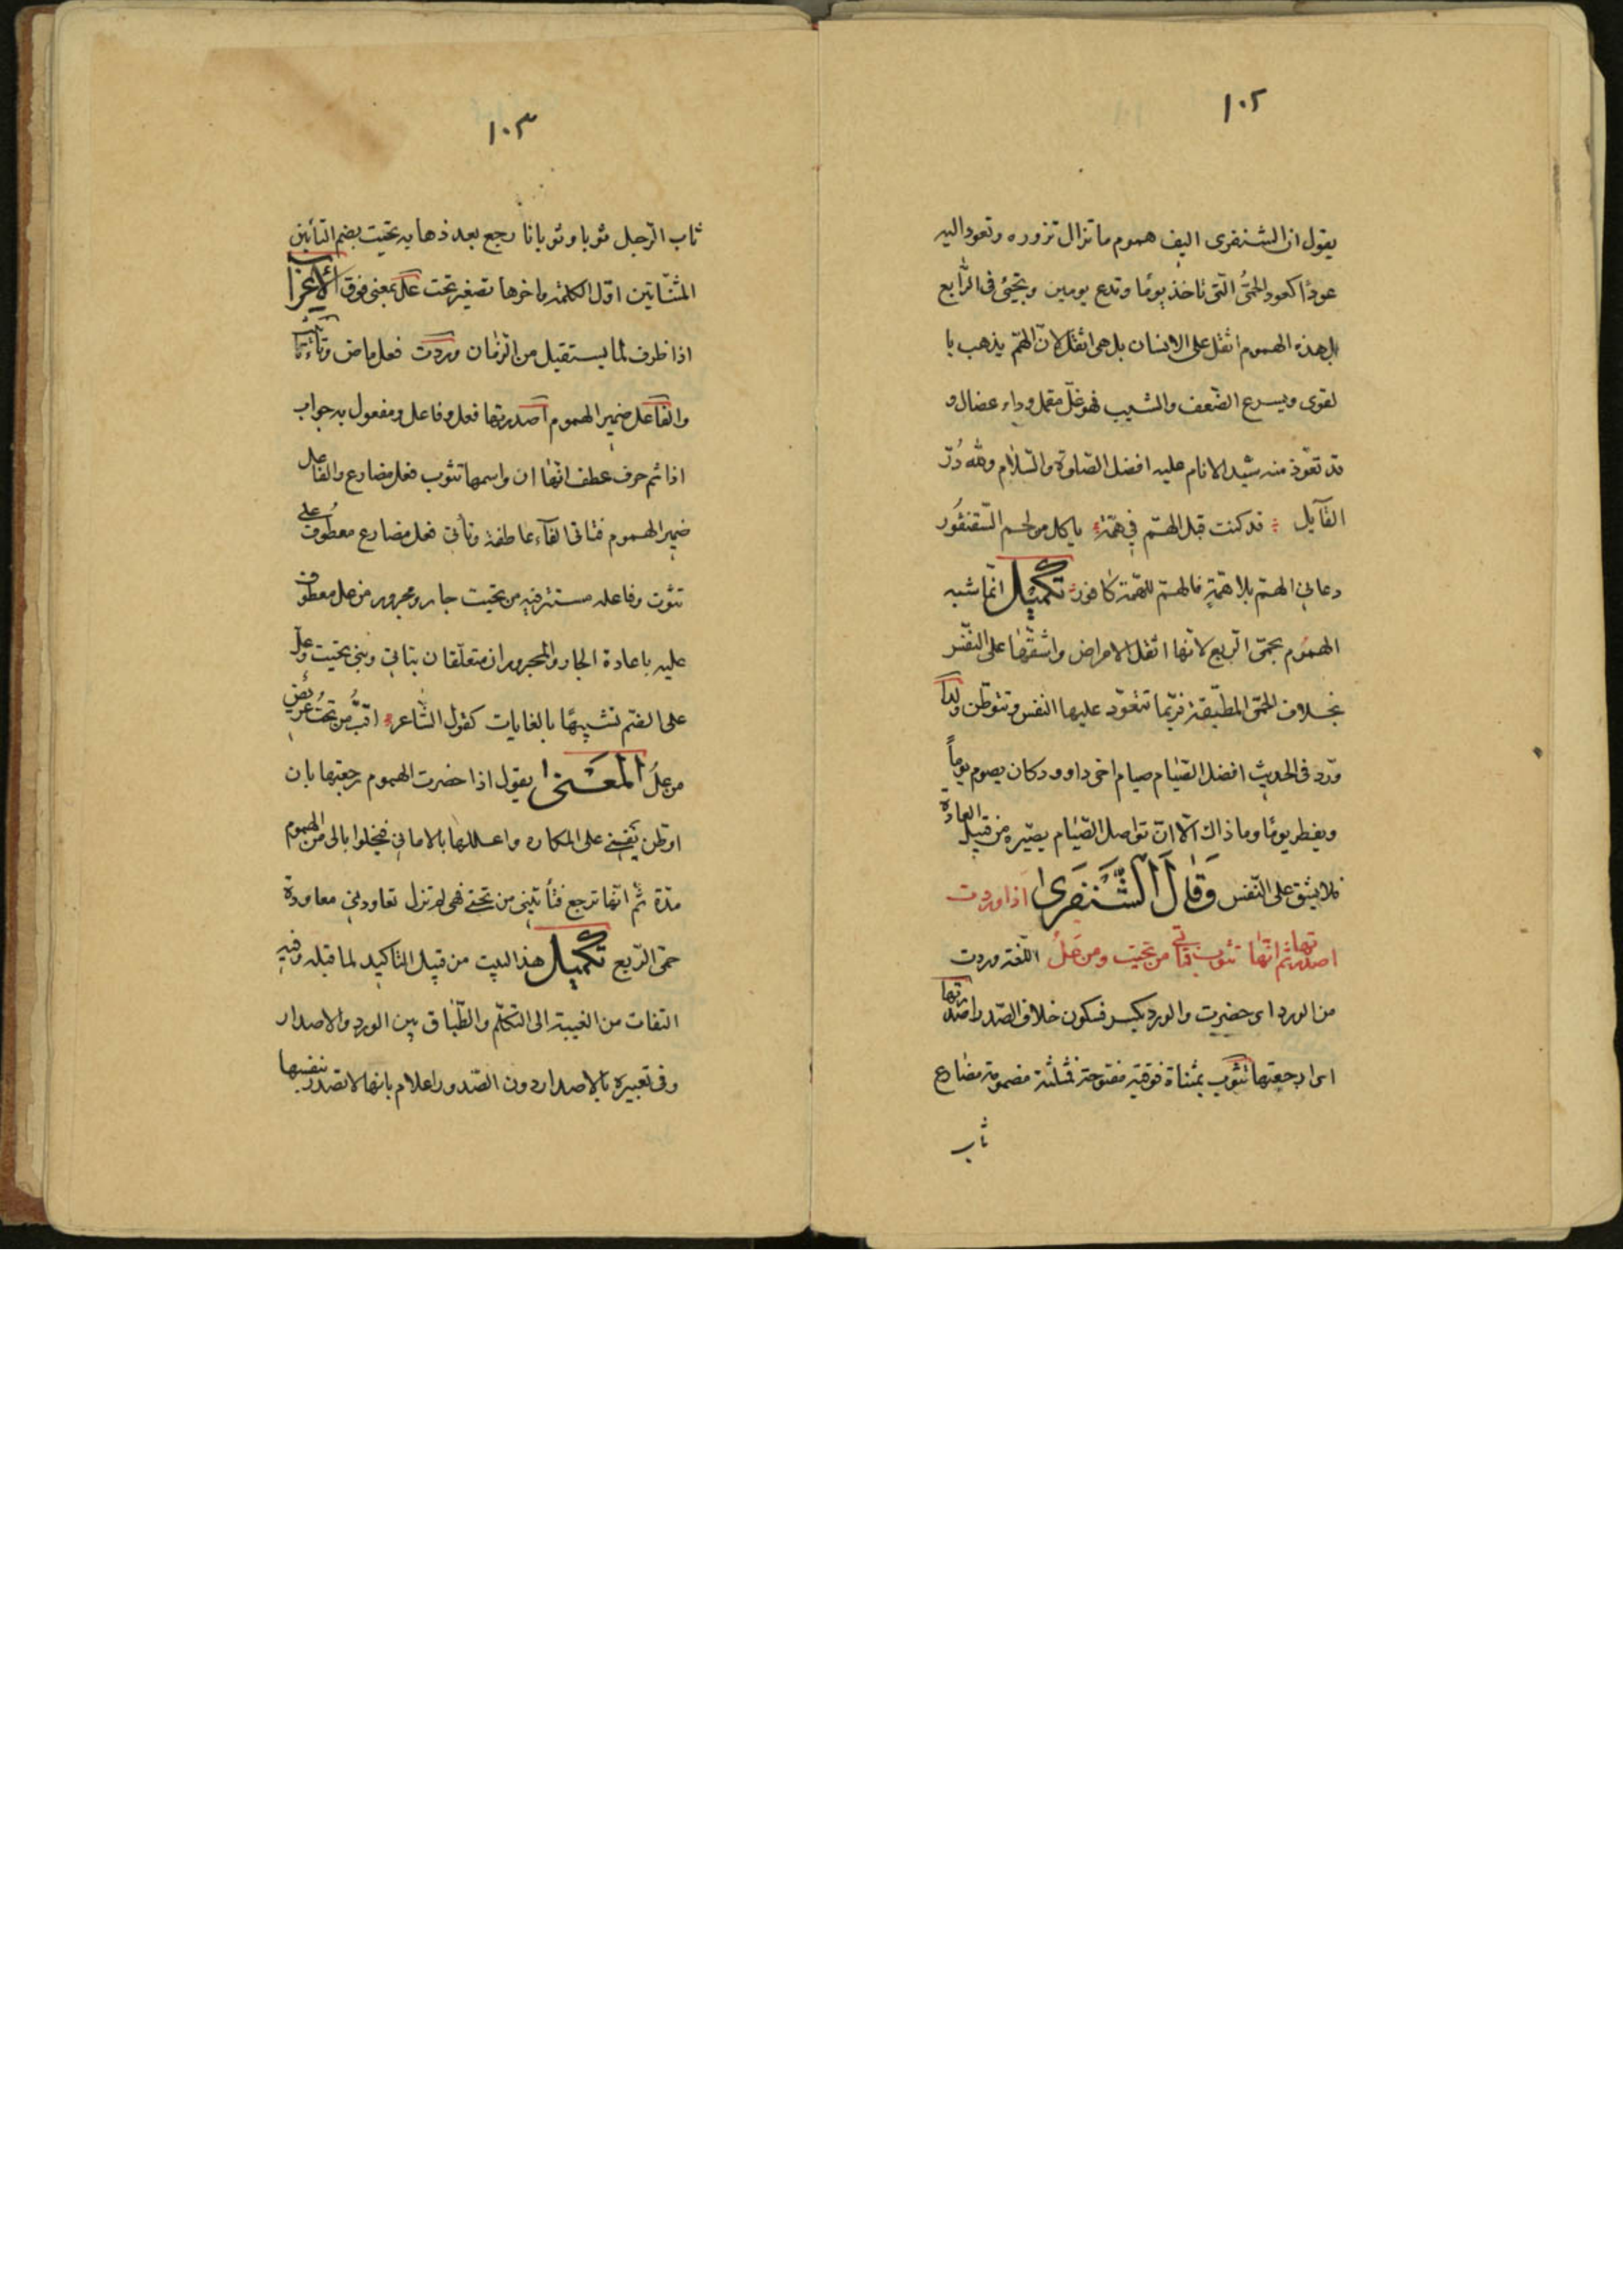 ١٠٢
يقول ان الشنفرى اليف هموم ما تزال تزوره وتعود اليه
عودًا كعود الحمّى التى تاخذ يومًا وتدع يومين وتجيئ فى الرّابع
بل هذه الهموم اثقل على الانسان بل هى اثقل لانّ الهمّ يذهب با
لقوى ويسرع الضّعف والشيب فهو غلّ مقمل وداء عضال و
قد تعوّذ منه سيّد الانام عليه افضل الصّلوة والسّلام ولله دُرّ
القآيل قد كنت قبل الهمّ في همّة ياكل من لحم السّقنقور
دعاني الهمّ بلا همّةٍ فالهمّ للهمّة كافور تكميل انّما شبه
الهموم بحمّى الرّبع لانّها اثقل الامراض واشقّها على النّفس
بخلاف الحمّى المطبّقة فربّما تتعوّد عليها النفس وتتوطّن ولذا
ورد فى الحديث افضل الصّيام صيام اخى داوود كان يصوم يوماً
ويفطر يومًا وما ذاك الّا انّ تواصل الصّيام يصيّره من قبيل العادة
فلا يشق على النّفس وَقَالَ الشَّنفَرى اذا وردت
اصدرتها ثم انّها تثوب فتأتي من تحيت ومن عَلُ اللّغة وردت
من الورد اى حضرت والورد بكسر فسكون خلاف الصّدر اصدرتها
اى ارجعتها تثوب بمثناة فوقية مفتوحة فمثلثة مضمومة مضارع
ثاب
١٠٣
ثاب الرّجل ثوبا وثوبانا رجع بعد ذهابه تحيت بضم التائين
المثنّاتين اوّل الكلمة واخرها تصغير تحت عَل بمعنى فوق الاعراب
اذا ظرف لما يستقبل من الزّمان وردت فعل ماض وتاء تا
والفاعل ضمير الهموم اصدرتها فعل وفاعل ومفعول به جواب
اذا ثم حرف عطف انّها ان واسمها تثوب فعل مضارع والفاعل
ضمير الهموم فتاتى الفآء عاطفة وتأتى فعل مضارع معطوف على
تثوب وفاعله مستتر فيه من تحيت جار ومجرور من عل معطوف
عليه باعادة الجار والمجروران متعلّقان بتاتي وبنى تحيت وعل
على الضّم تشبيهًا بالغايات كقول الشّاعر اقبّ من تحتُ عريض
من علُ المعنى يقول اذا حضرت الهموم رجعتها بان
اوطّن نفسي على المكاره واعلّلها بالاماني فيخلوا بالى من الهموم
مدّة ثم انّها ترجع فتأتيني من تحتي فهى لم تزل تعاودني معاودة
حمّى الرّبع تكميل هذا البيت من قبيل التاكيد لما قبله وفيه
التفات من الغيبة الى التكلّم والطّباق بين الورد والاصدار
وفى تعبيره بالاصدار دون الصّدور اعلام بانها لا تصدر بنفسها